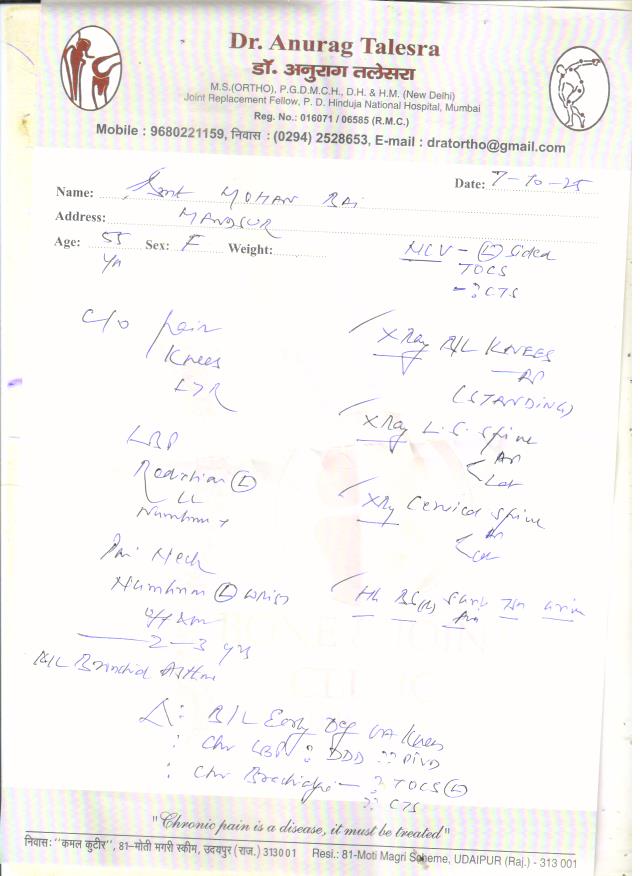 Dr. Anurag Talesra
डॉ. अनुराग तलेसरा
M.S.(ORTHO), P.G.D.M.C.H., D.H. & H.M. (New Delhi)
Joint Replacement Fellow, P. D. Hinduja National Hospital, Mumbai
Reg. No.: 016071 / 06585 (R.M.C.)
Mobile : 9680221159, निवास : (0294) 2528653, E-mail : dratortho@gmail.com
Date: 7-10-25
Name: Smt MOHAN Bai
Address: MANDSUR
Age: 55 Yr Sex: F Weight:
NCV - (L) sided
TOCS
- ? CTS
C/o pain
Knees
L>R
X Ray B/L KNEES
AP
(STANDING)
LBP
Radiation (L)
LL
Numbness +
X Ray L.S. Spine
AP
Lat
X Ray Cervical Spine
AP
Lat
Pain Neck
Numbness (L) wrist
2-3 yrs
Hb BS(R) Urine
B/L Bronchial Asthma
Δ: B/L Early Deg OA Knees
: Chr LBP ? DDD ?? PIVD
: Chr Brachialgia - ? TOCS (L)
?? CTS
"Chronic pain is a disease, it must be treated"
निवास: "कमल कुटीर", 81-मोती मगरी स्कीम, उदयपुर (राज.) 313001 Resi.: 81-Moti Magri Scheme, UDAIPUR (Raj.) - 313 001